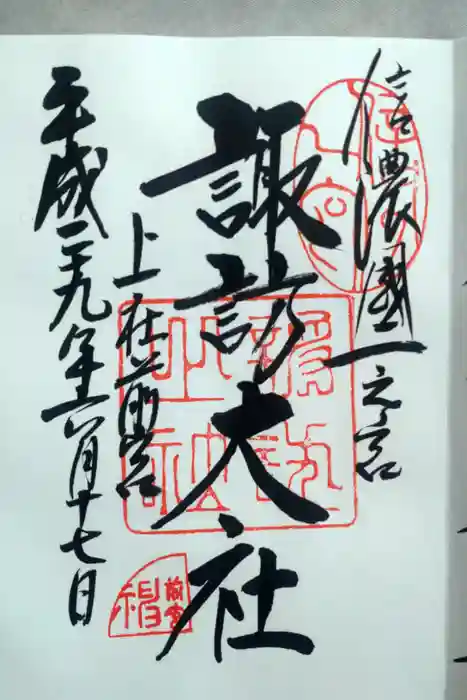 信濃國一之宮
諏訪大社
上社前宮
平成二十九年十六月十七日
諏訪大社
前宮